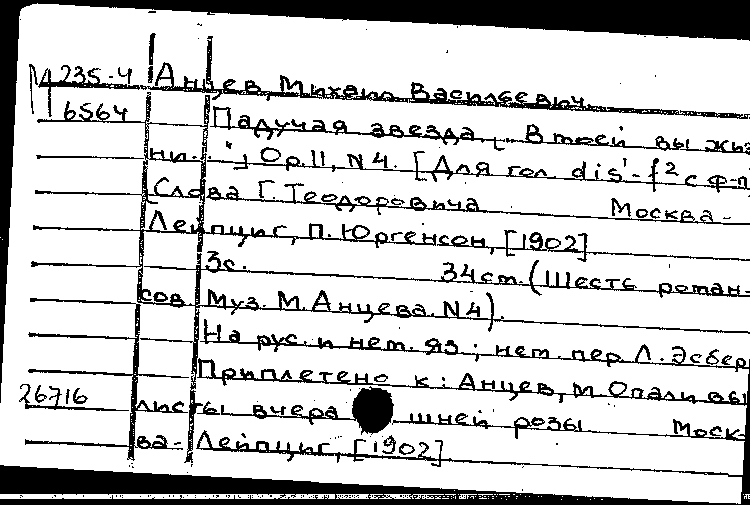 М 235-4 Анцев, Михаил Васильевич.
6564 Падучая звезда. [„В твоей вы жиз-
ни..."], Ор.11, N4. [Для гол. dis¹-f² с ф-п]
Слова Г. Теодоровича Москва-
Лейпциг, П. Юргенсон, [1902]
3с. 34см. (Шесть роман-
сов. Муз. М. Анцева. N4).
На рус. и нем. яз.; нем. пер. Л. Эсбер
Приплетено к: Анцев, М. Опали вы
26716 листы вчерашней розы Моск-
ва-Лейпциг, [1902]